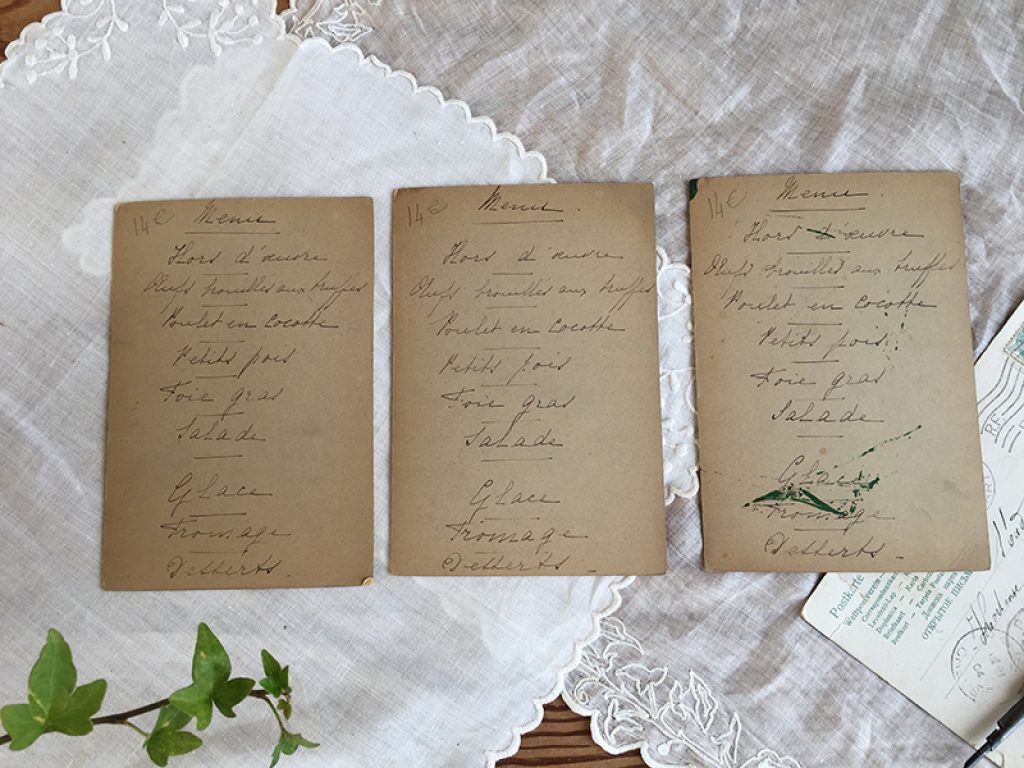 14€ Menu
Hors d'œuvre
Œufs brouillés aux truffes
Poulet en cocotte
Petits pois
Foie gras
Salade
Glace
Fromage
Desserts
14€ Menu
Hors d'œuvre
Œufs brouillés aux truffes
Poulet en cocotte
Petits pois
Foie gras
Salade
Glace
Fromage
Desserts
14€ Menu
Hors d'œuvre
Œufs brouillés aux truffes
Poulet en cocotte
Petits pois
Foie gras
Salade
Glace
Fromage
Desserts
RF
Postkarte
Weltpostverein
Correspondenzkarte
Levelező-Lap
Dopisnice
Briefkaart
Brefkort
ОТКРЫТОЕ ПИСЬМО